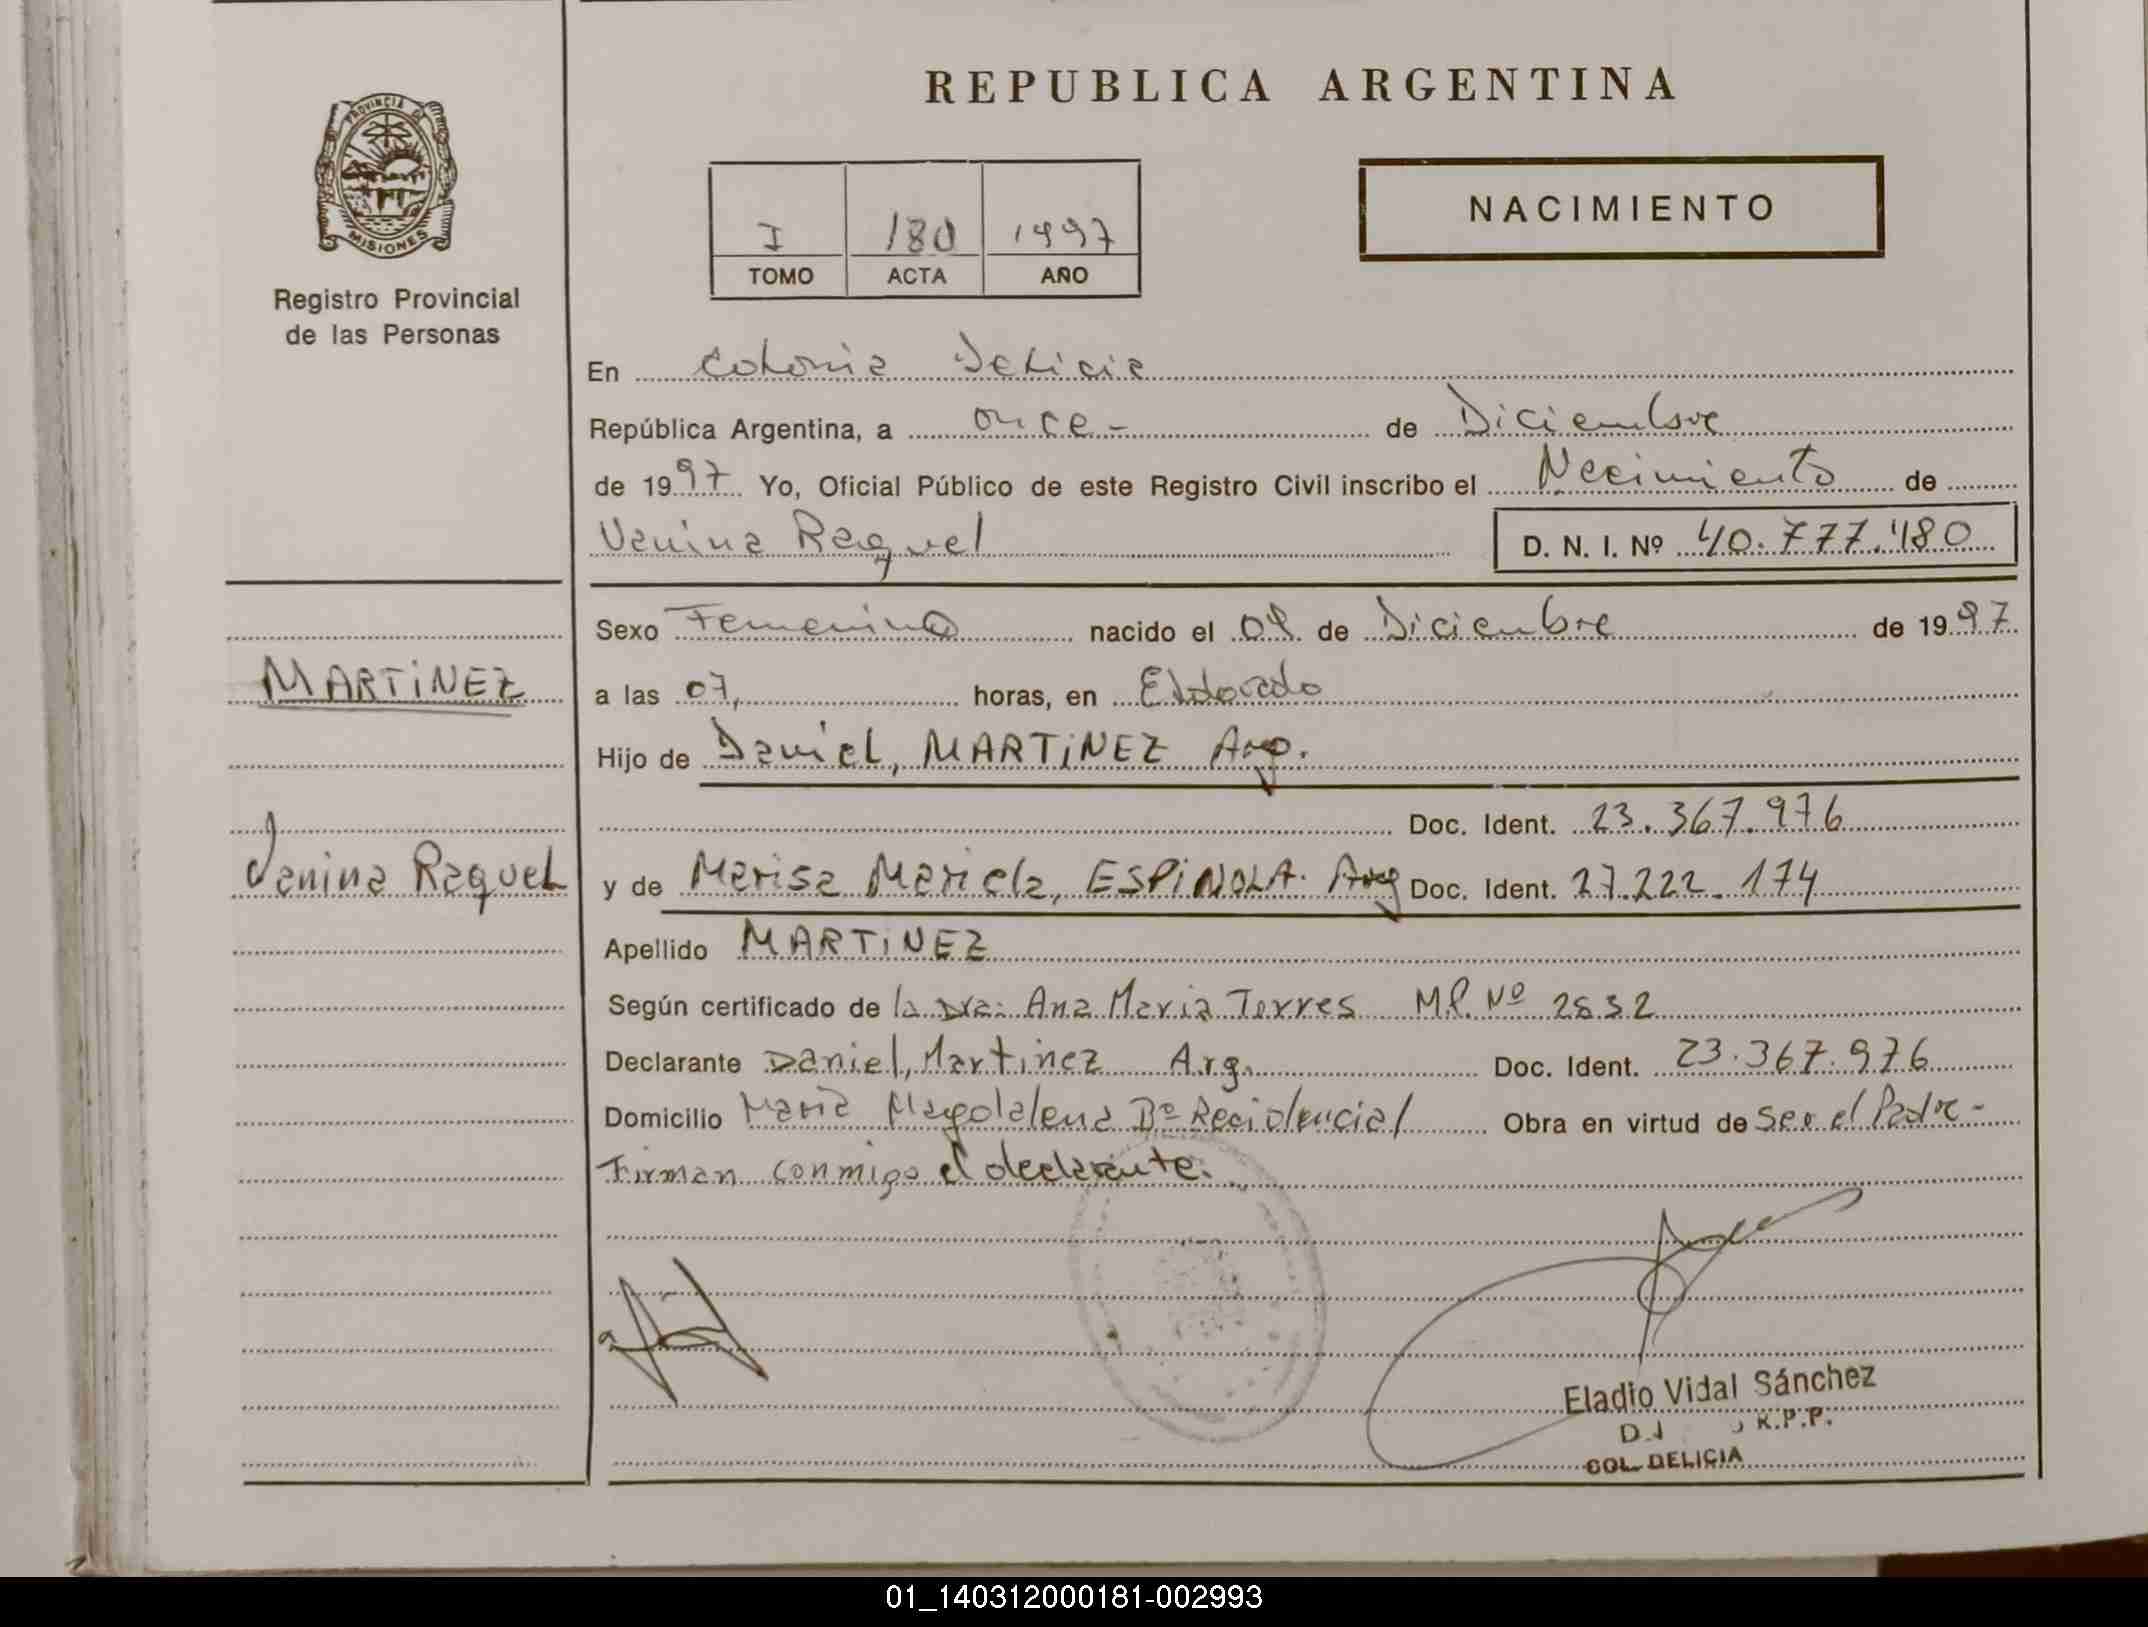 REPUBLICA ARGENTINA
PROVINCIA DE MISIONES
Registro Provincial
de las Personas
NACIMIENTO
I 180 1997
TOMO ACTA AÑO
En Colonia Delicia
República Argentina, a once - de Diciembre
de 1997 Yo, Oficial Público de este Registro Civil inscribo el Nacimiento de
Vanina Raquel D. N. I. Nº 40.777.180
Sexo Femenino nacido el 04 de Diciembre de 1997
MARTiNEZ
a las 07, horas, en Eldorado
Hijo de Daniel, MARTiNEZ Arg.
Doc. Ident. 23.367.976
Vanina Raquel
y de Marisa Mariela, ESPiNOLA. Arg Doc. Ident. 27.222.174
Apellido MARTiNEZ
Según certificado de la Dra: Ana Maria Torres M.P. Nº 2632
Declarante Daniel, Martinez Arg. Doc. Ident. 23.367.976
Domicilio Maria Magdalena Bº Recidencial Obra en virtud de Ser el Padre -
Firman conmigo el declarante.
Eladio Vidal Sánchez
R.P.P.
COL. DELICIA
01_140312000181-002993